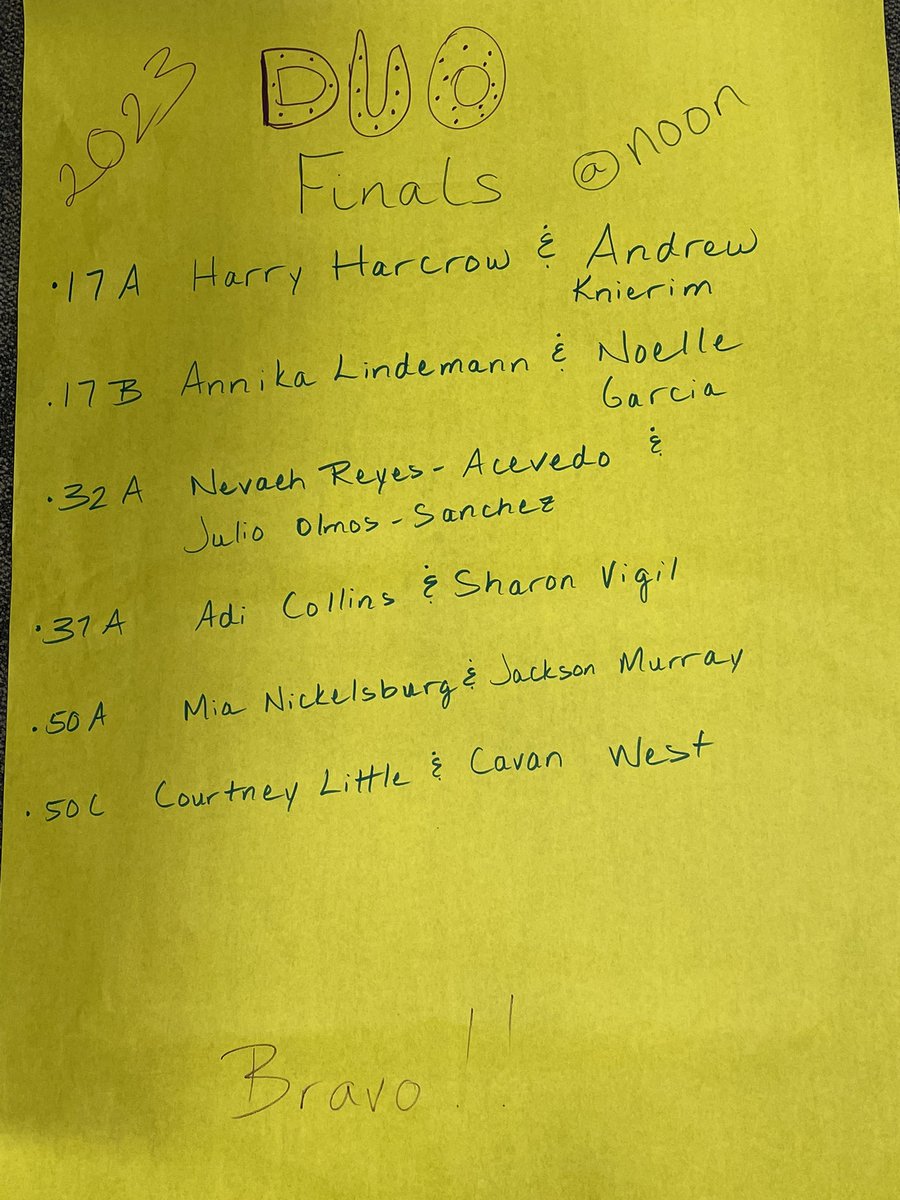 2023 DUO
Finals @noon
·17A Harry Harcrow & Andrew
Knierim
·17B Annika Lindemann & Noelle
Garcia
·32A Nevaeh Reyes-Acevedo &
Julio Olmos-Sanchez
·37A Adi Collins & Sharon Vigil
·50A Mia Nickelsburg & Jackson Murray
·50C Courtney Little & Cavan West
Bravo!!